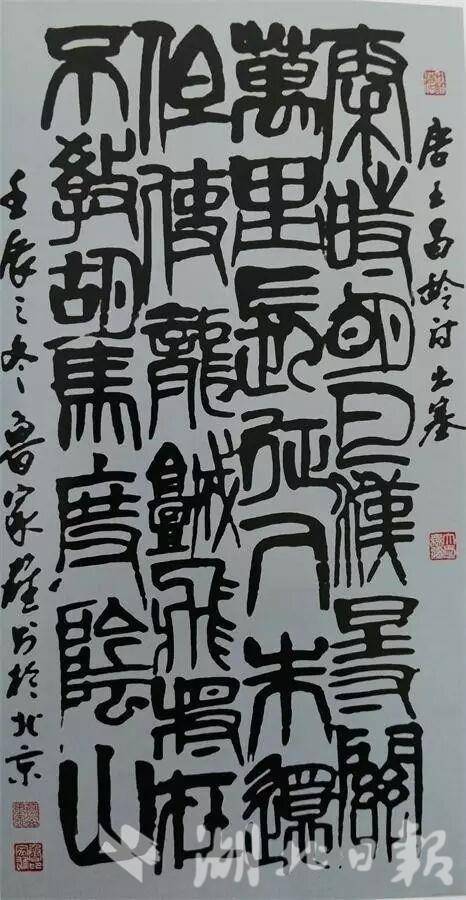 唐王昌齡詩出塞
秦時明月漢時關
萬里長征人未還
但使龍城飛將在
不教胡馬度陰山
壬辰之冬魯家书於北京
湖北日報